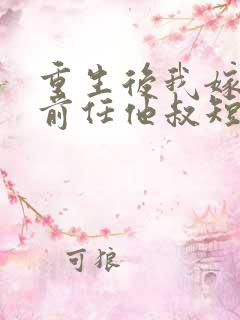 重生後我嫁
前任他叔短
可狼